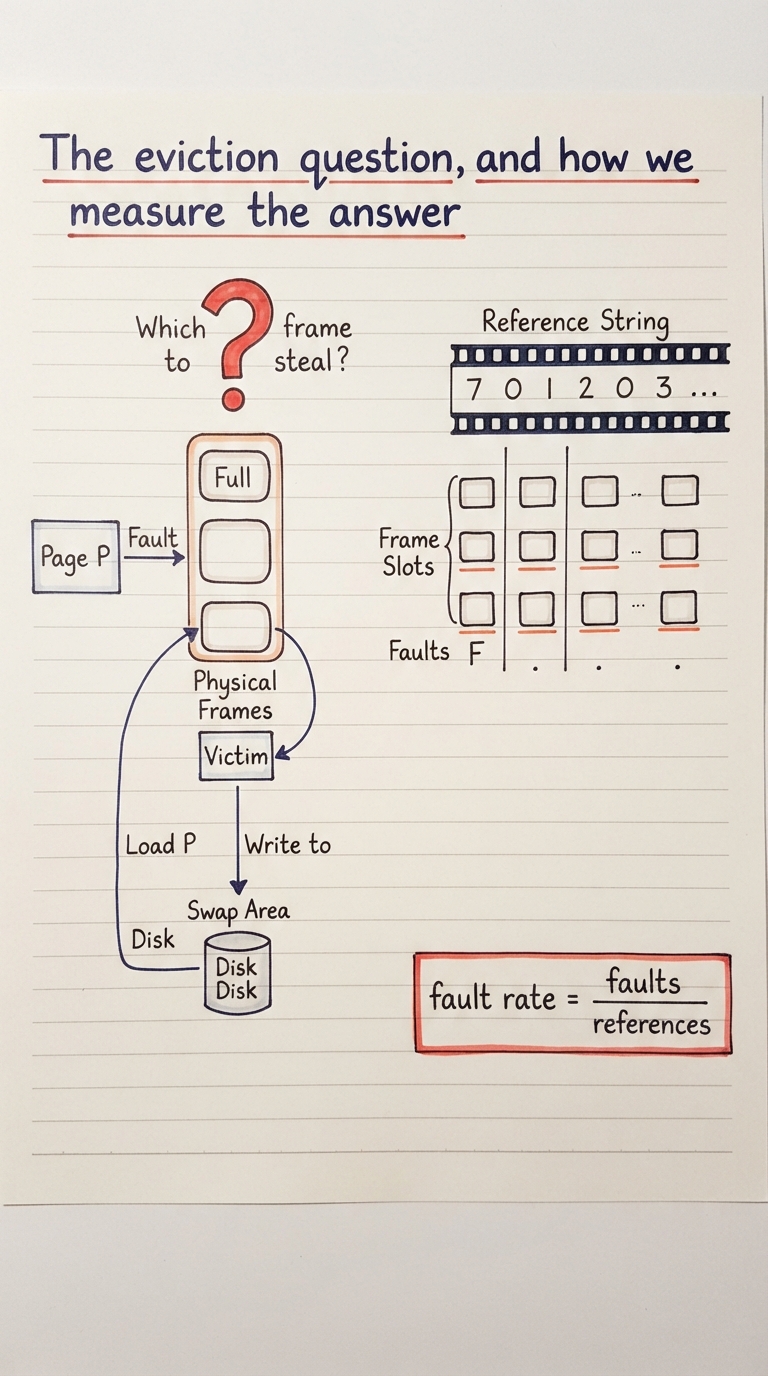 The eviction question, and how we
measure the answer
Which ? frame
to steal?
Full
Page P
Fault
Physical
Frames
Victim
Load P
Write to
Swap Area
Disk
Disk
Disk
Reference String
7 0 1 2 0 3 ...
Frame
Slots
...
...
...
Faults F . . .
fault rate = faults
references